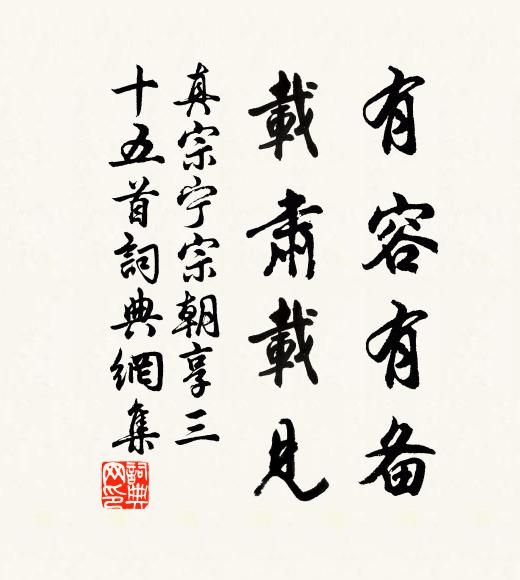 有容有备
載肅載見
真宗宁宗朝享三
十五首詞典網集
詞典网印